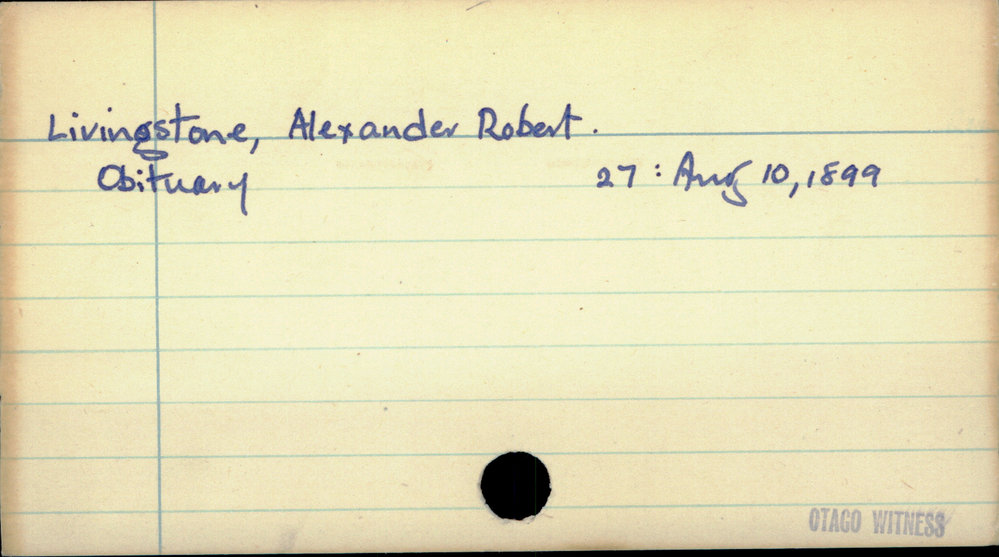 Livingstone, Alexander Robert.
Obituary 27 : Aug 10, 1899
OTAGO WITNESS